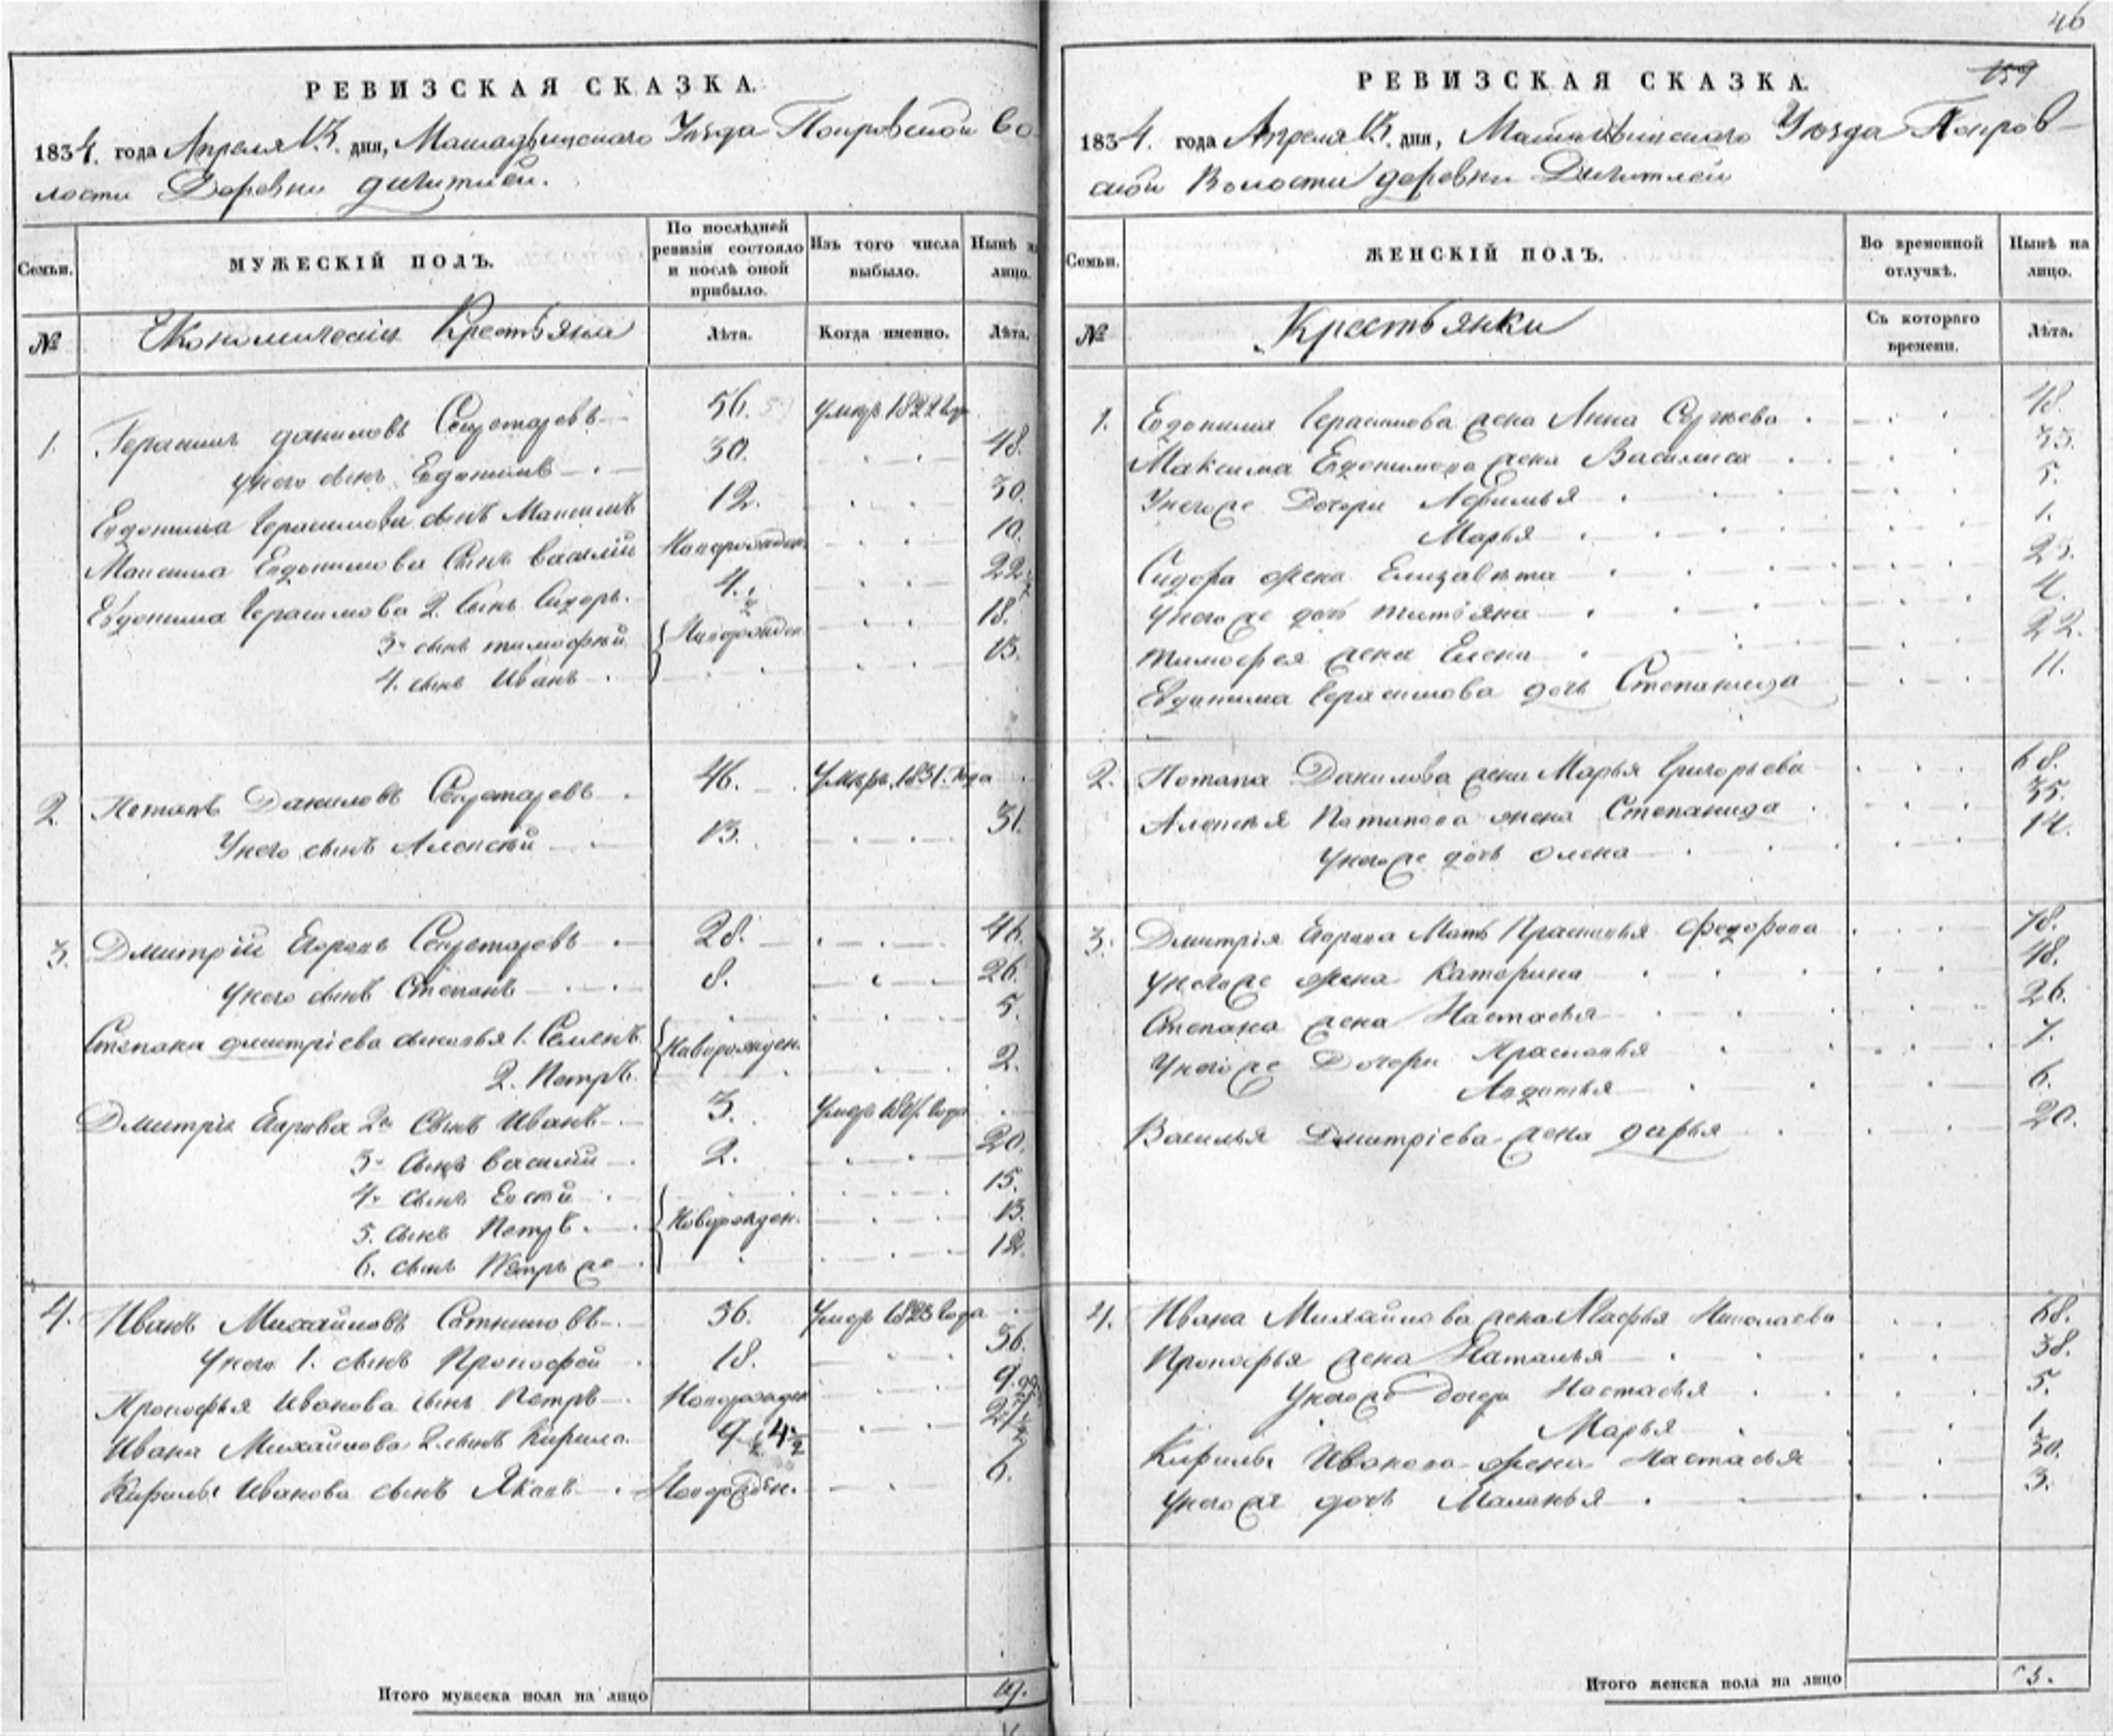 РЕВИЗСКАЯ СКАЗКА.
1834. года Апреля 13. дня, Уезда Покровской Во-
лости Деревни
Семьи.
МУЖЕСКІЙ ПОЛЪ.
По послѣдней ревизіи состояло и послѣ оной прибыло.
Изъ того числа выбыло.
Нынѣ на лицо.
№
Экономические Крестьяна
Лѣта.
Когда именно.
Лѣта.
1. Герасимъ даниловъ 56. умеръ 1822 году
у него сынъ Евдокимъ 30. 48.
Евдокима Герасимова сынъ Максимъ 12. 30.
Максима Евдокимова Сынъ василій Новорожден. 10.
Евдокима Герасимова 2. Сынъ Сидоръ. 4 1/2 22 1/2
3й сынъ тимофей Новорожден. 18.
4. сынъ Иванъ 13.
2. Потапъ Даниловъ 46. Умеръ 1831. года
У него сынъ Алексѣй 13. 31.
3. Дмитрій Егоровъ 28. 46.
у него сынъ Степанъ 8. 26.
Степана дмитріева сыновья 1. Семенъ Новорожден. 5.
2. Петръ. 2.
Дмитрія Егорова 2й Сынъ Иванъ 3. Умеръ года
3й Сынъ василій 2. 20.
4й сынъ 15.
5. сынъ Петръ. Новорожден. 13.
6. сынъ Петръ же 12.
4. Иванъ Михайловъ 56. Умеръ 1823 года
У него 1. сынъ Прокофей 18. 36.
Прокофья Иванова сынъ Петръ Новорожден 9.
Ивана Михайлова 2. сынъ Кирила 9 1/2 4 1/2 27 1/2
Кирилы Иванова сынъ Яковъ Новорожден. 6.
Итого мужеска пола на лицо 19.
46
159
РЕВИЗСКАЯ СКАЗКА.
1834. года Апреля 13. дня, Уезда Покров-
ской Волости деревни
Семьи.
ЖЕНСКІЙ ПОЛЪ.
Во временной отлучкѣ.
Нынѣ на лицо.
№
Крестьянки
Съ котораго времени.
Лѣта.
1. Евдокима Герасимова жена Анна 48.
Максима Евдокимова жена Василиса 35.
У него же Дочери 5.
Марья 1.
Сидора жена Елизавета 25.
У него же дочь татьяна 4.
тимофея жена Елена 22.
Евдокима Герасимова дочь Степанида 11.
2. Потапа Данилова жена Марья Григорьева 68.
Алексѣя Потапова жена Степанида 35.
У него же дочь олена 14.
3. Дмитрія Егорова Мать Прасковья Федорова 78.
У него же жена Катерина 48.
Степана жена Настасья 26.
У него же Дочери Прасковья 7.
Авдотья 6.
Василья Дмитріева жена дарья 20.
4. Ивана Михайлова жена Марфья Николаева 68.
Прокофья жена Наталья 38.
У него же дочери Настасья 5.
Марья 1.
Кирилы Иванова жена Настасья 30.
У него же дочь Маланья 3.
Итого женска пола на лицо